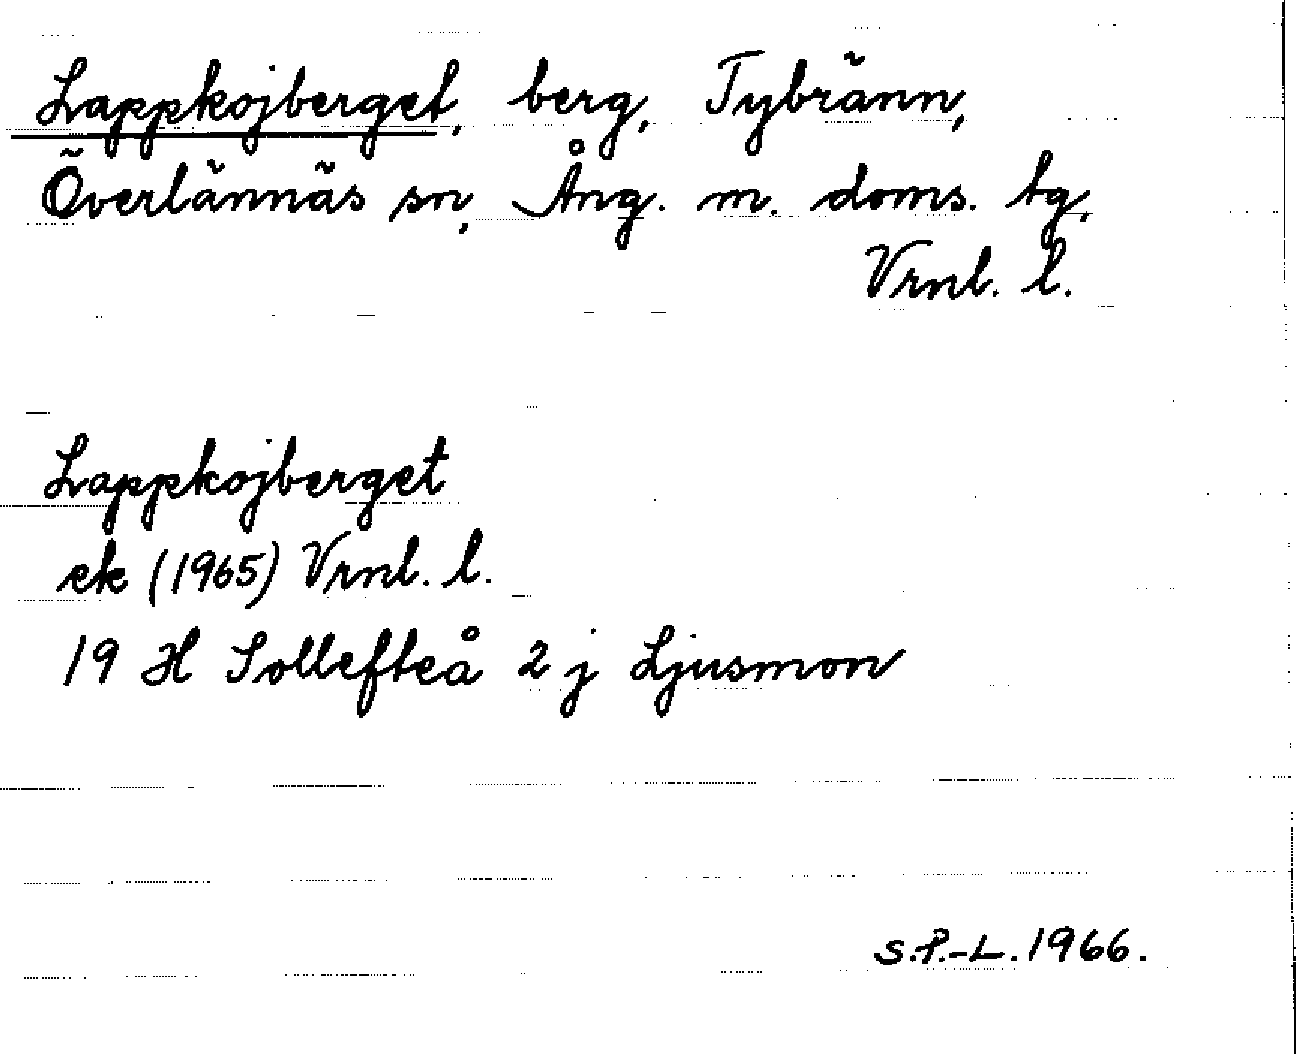 Lappkojberget, berg, Tybränn,
Överlännäs sn, Ång. m. doms. tg,
Vrnl. l.
Lappkojberget
ek (1965) Vrnl. l.
19 H Sollefteå 2 j Ljusmon
S.P.-L. 1966.